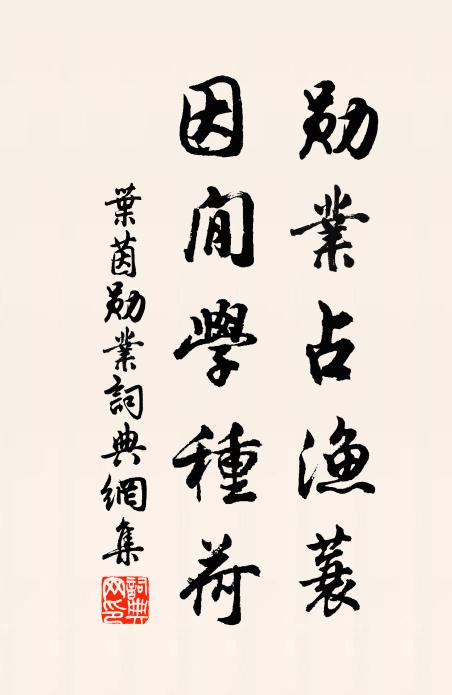 勛業占漁蓑
因閒學種荷
葉茵勛業詞典網集
詞典網印